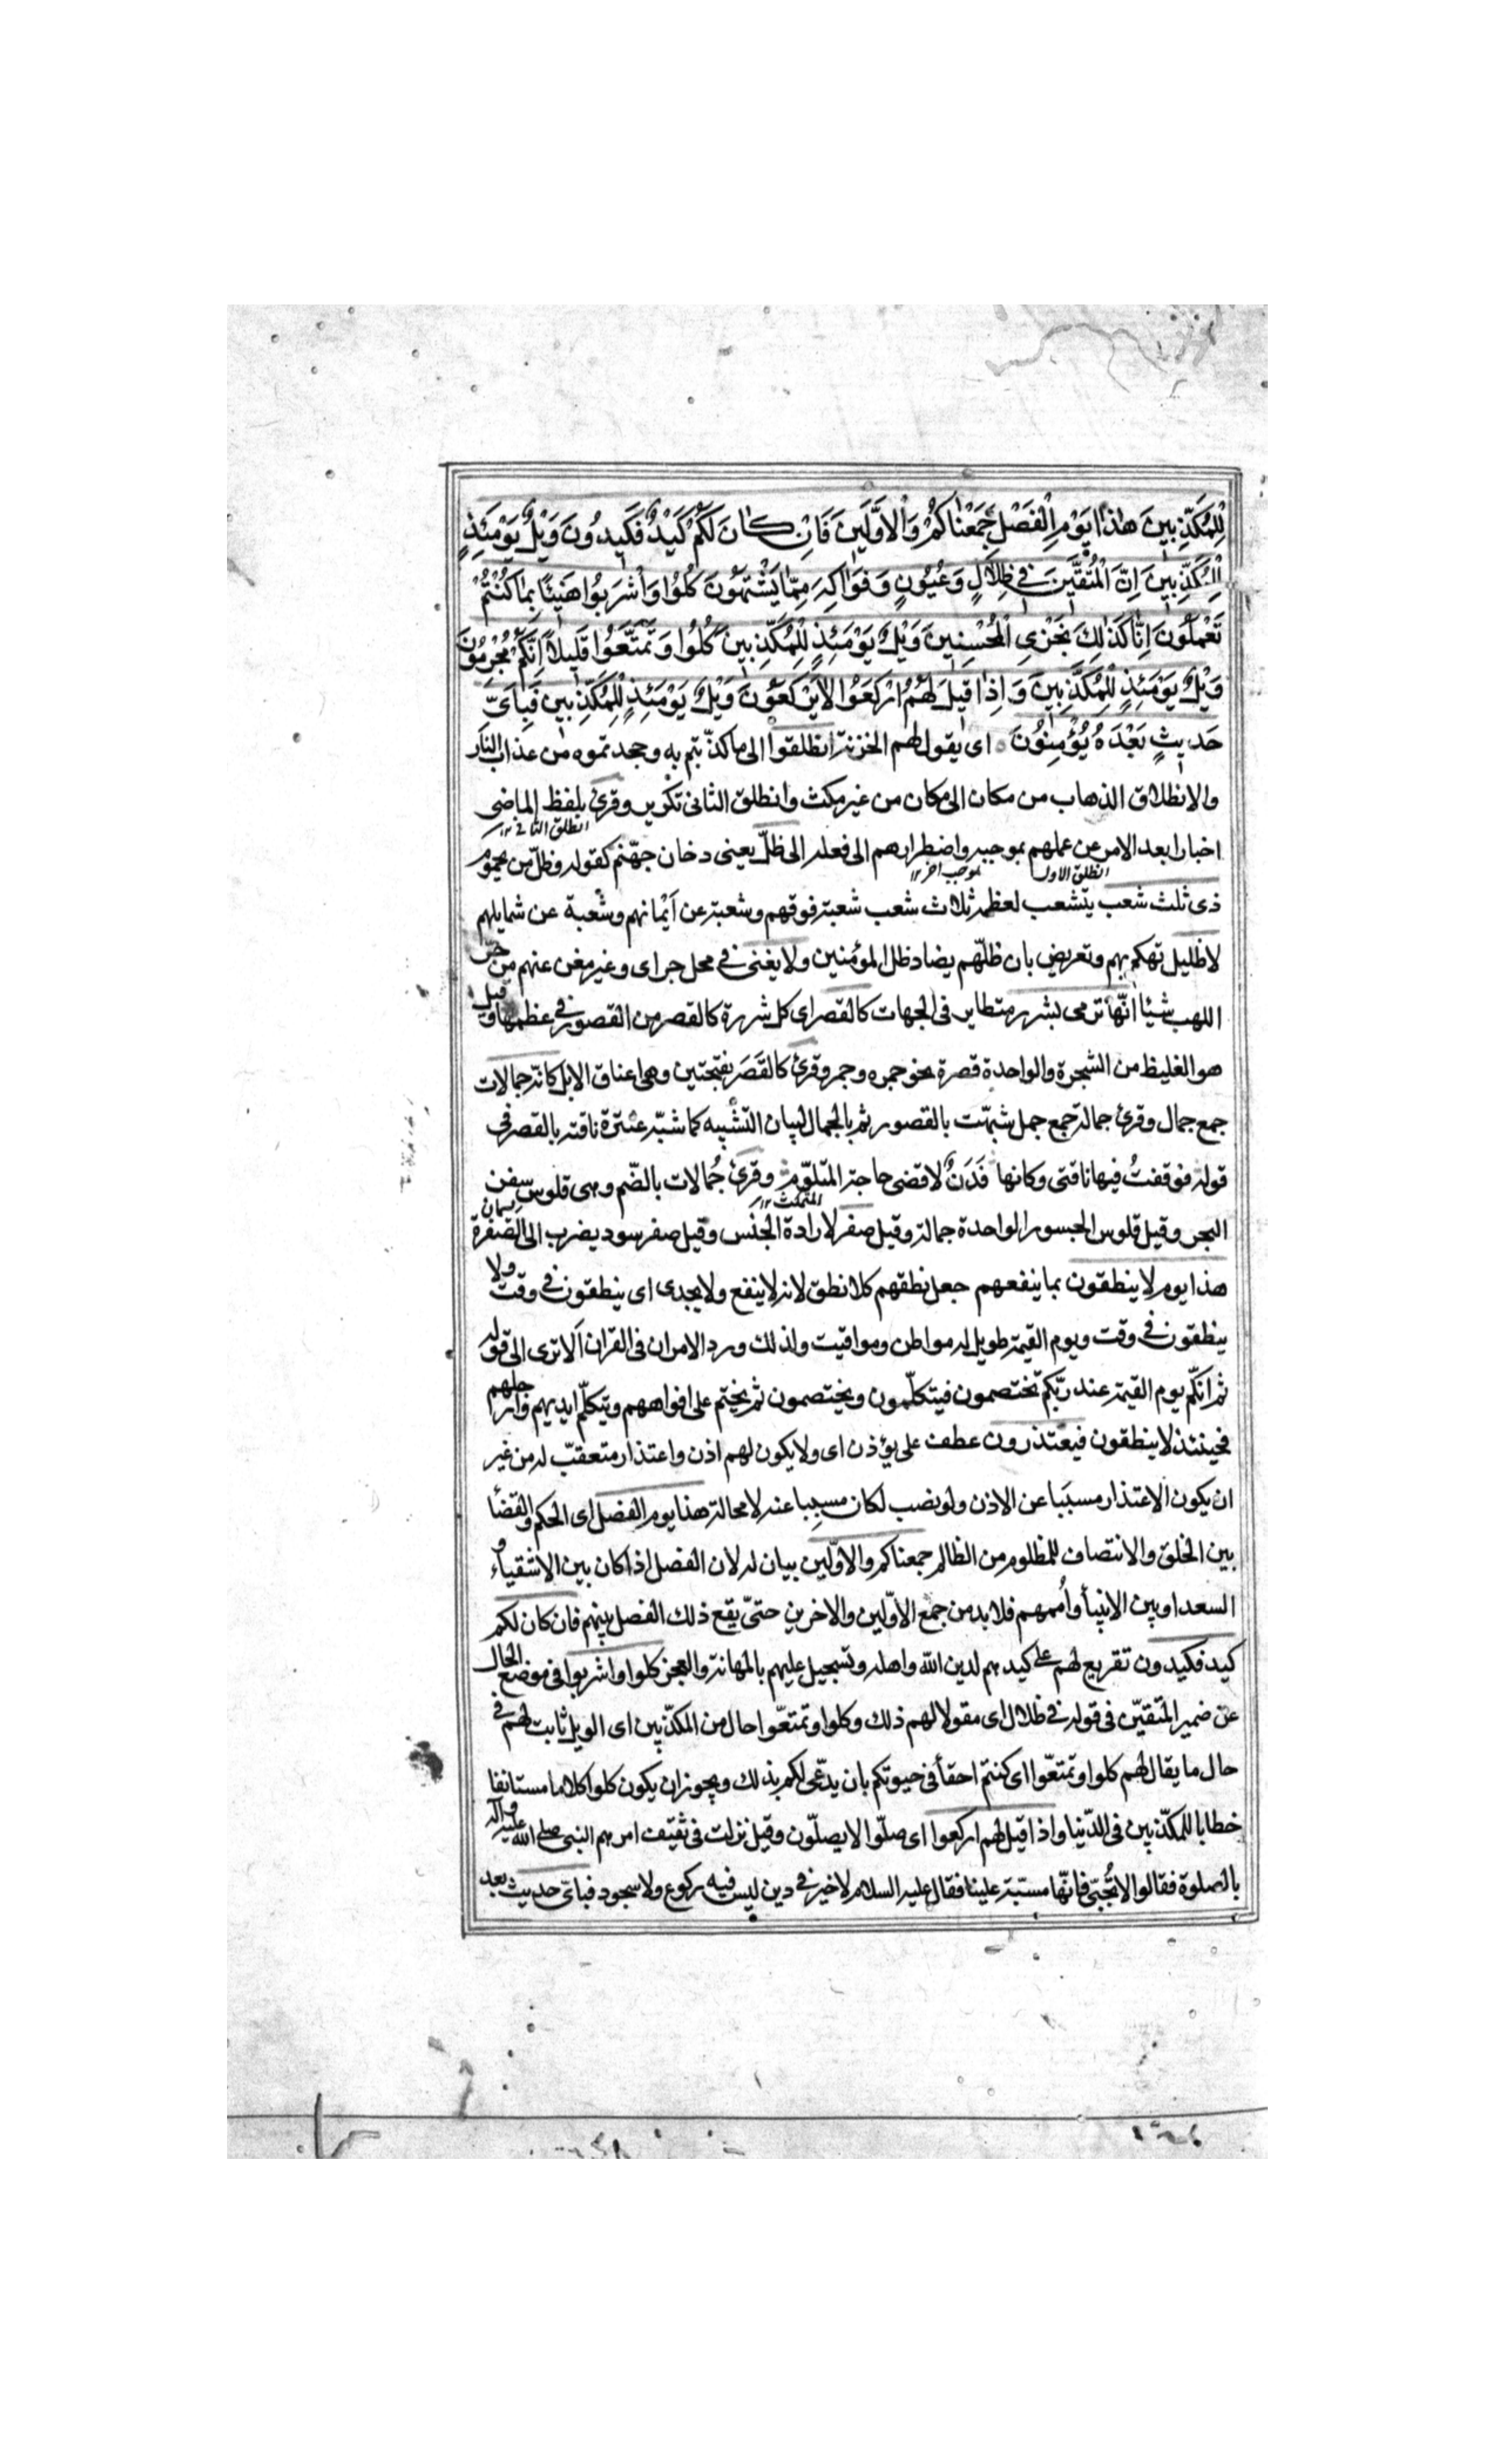 لِلْمُكَذِّبِينَ هٰذَا يَوْمُ الْفَصْلِ جَمَعْنَاكُمْ وَالْاَوَّلِينَ فَاِنْ كَانَ لَكُمْ كَيْدٌ فَكِيدُونَ وَيْلٌ يَوْمَئِذٍ
لِلْمُكَذِّبِينَ اِنَّ الْمُتَّقِينَ فِي ظِلَالٍ وَعُيُونٍ وَفَوَاكِهَ مِمَّا يَشْتَهُونَ كُلُوا وَاشْرَبُوا هَنِيئًا بِمَا كُنْتُمْ
تَعْمَلُونَ اِنَّا كَذٰلِكَ نَجْزِي الْمُحْسِنِينَ وَيْلٌ يَوْمَئِذٍ لِلْمُكَذِّبِينَ كُلُوا وَتَمَتَّعُوا قَلِيلًا اِنَّكُمْ مُجْرِمُونَ
وَيْلٌ يَوْمَئِذٍ لِلْمُكَذِّبِينَ وَاِذَا قِيلَ لَهُمُ ارْكَعُوا لَا يَرْكَعُونَ وَيْلٌ يَوْمَئِذٍ لِلْمُكَذِّبِينَ فَبِاَيِّ
حَدِيثٍ بَعْدَهُ يُؤْمِنُونَ اى يقول لهم الخزنة انطلقوا الى ما كذّبتم به وجحدتموه من عذاب النار
والانطلاق الذهاب من مكان الى مكان من غير مكث وانطلق الثانى تكرير وقرئ بلفظ الماضى
انطلق الثانى ١٢
اخبارا بعد الامر عن عملهم بموجبه واضطرارهم الى فعله الى ظلّ يعنى دخان جهّنم كقوله وظلّ من يحموم
انطلق الاول بموجب امر ١٢
ذى ثلث شعب يتشعب لعظمه ثلاث شعب شعبة فوقهم وشعبة عن اَيْمانهم وشُعبة عن شمايلهم
لا ظليل تهكم بهم وتعريض بان ظلّهم يضاد ظل المؤمنين ولا يغنى فى محل جر اى وغير مغن عنهم من حرّ
اللهب شيئا انّها ترمى بشرر متطاير فى الجهات كالقصر اى كل شررة كالقصر من القصور فى عظمها وقيل
هو الغليظ من الشجرة والواحدة قصرة نحو جمره وجمر وقرئ كالقَصَر بفتحتين وهى اعناق الابل كانه جمالات
جمع جمال وقرئ جمالة جمع جمل شبّهت بالقصور ثم بالجمال لبيان التشبيه كما شبّه عنترة ناقته بالقصر فى
قوله فوقفتُ فيها ناقتى وكانها فَدَنٌ لاقضى حاجة المتلوّم وقرئ جُمالات بالضّم وهى قلوس سفن
المتمكث ١٢
البحر وقيل قلوس الجسور الواحدة جمالة وقيل صفر لارادة الجنس وقيل صفر سود يضرب الى الصفرة
هذا يوم لا ينطقون بما ينفعهم جعل نطقهم كلا نطق لانه لا ينفع ولا يجدى اى ينطقون فى وقت ولا
ينطقون فى وقت ويوم القيمة طويل له مواطن ومواقيت ولذلك ورد الامران فى القران اَلا ترى الى قوله
ثم انّكم يوم القيمة عند ربّكم تختصمون فيتكلّمون ويختصمون ثم يختم على افواههم ويتكلّم ايديهم وارجلهم
فحينئذ لا ينطقون فيعتذرون عطف على يؤذن اى ولا يكون لهم اذن واعتذار متعقبّ له من غير
ان يكون الاعتذار مسبَبا عن الاذن ولو نصب لكان مسببا عنه لا محالة هذا يوم الفصل اى الحكم والقضأ
بين الخلق والانتصاف للمظلوم من الظالم جمعناكم والاوّلين بيان له لان الفصل اذا كان بين الاشقياء و
السعدا وبين الانبيأ واُممهم فلا بد من جمع الاوّلين والاخرين حتىّ يقع ذلك الفصل بينهم فان كان لكم
كيد فكيدون تقريع لهم على كيدهم لدين الله واهله وتسجيل عليهم بالمهانة والعجز كلوا واشربوا فى موضع الحال
عن ضمير المتقيّن فى قوله فى ظلال اى مقولا لهم ذلك وكلوا وتمتعّوا حال من المكذّبين اى الويل ثابت لهم فى
حال ما يقال لهم كلوا وتمتعّوا اى كنتم احقأ فى حيوتكم بان يدّعى لكم بذلك ويجوز ان يكون كلوا كلاما مستانفا
خطابا للمكذّبين فى الدّنيا واذا قيل لهم اركعوا اى صلّوا لا يصلّون وقيل نزلت فى ثقيف امرهم النبى صلى الله عليه وآله
بالصلوة فقالوا لا نُجَبّى فانّها مسبّة علينا فقال عليه السلام لا خير فى دين ليس فيه ركوع ولا سجود فباىّ حديث بعد